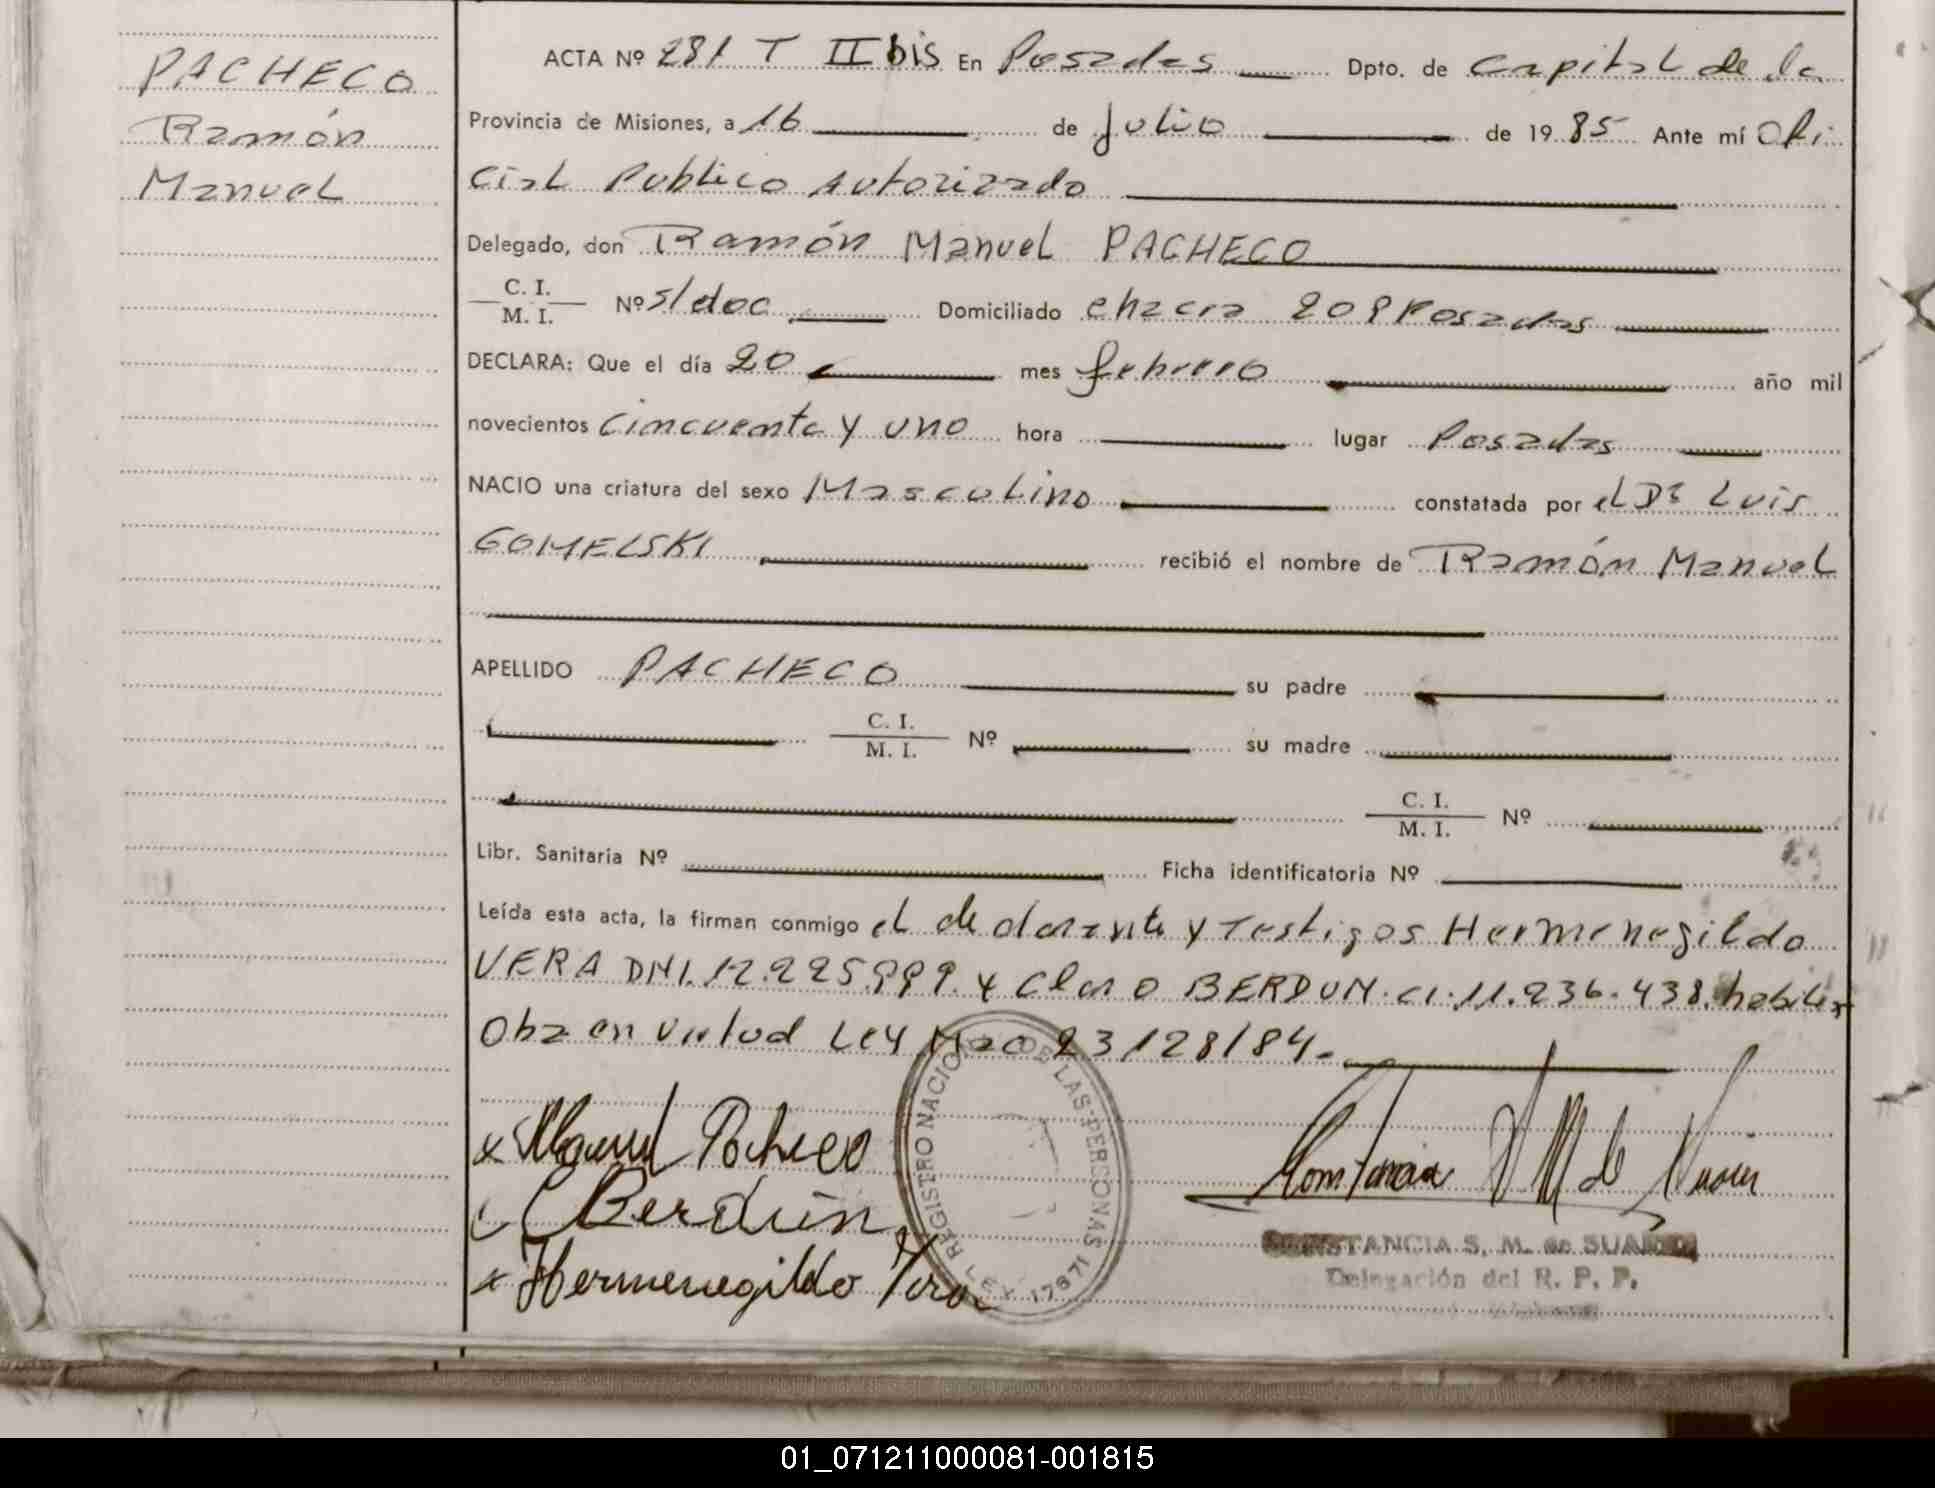 PACHECO
Ramón
Manuel
ACTA Nº 281 T II bis En Posadas Dpto. de Capital de la
Provincia de Misiones, a 16 de Julio de 1985 Ante mí Ofi
cial Publico Autorizado
Delegado, don Ramón Manuel PACHECO
C. I.
M. I. Nº s/doc Domiciliado chacra 209 Posadas
DECLARA: Que el día 20 mes febrero año mil
novecientos cincuenta y uno hora lugar Posadas
NACIO una criatura del sexo Masculino constatada por el Dr Luis
GOMELSKI recibió el nombre de Ramón Manuel
APELLIDO PACHECO su padre
C. I.
M. I. Nº su madre
C. I.
M. I. Nº
Libr. Sanitaria Nº Ficha identificatoria Nº
Leída esta acta, la firman conmigo el declarante y Testigos Hermenegildo
VERA DNI. 12.225.999. y Claro BERDUN. CI. 11.236.438. habiles
Obz en virtud Ley Nro 23/128/84.
x Manuel Pacheco
Berdún
x Hermenegildo Vera
REGISTRO NACIONAL DE LAS PERSONAS
LEY 17671
CONSTANCIA S. M. de SUAREZ
Delegación del R. P. P.
01_071211000081-001815